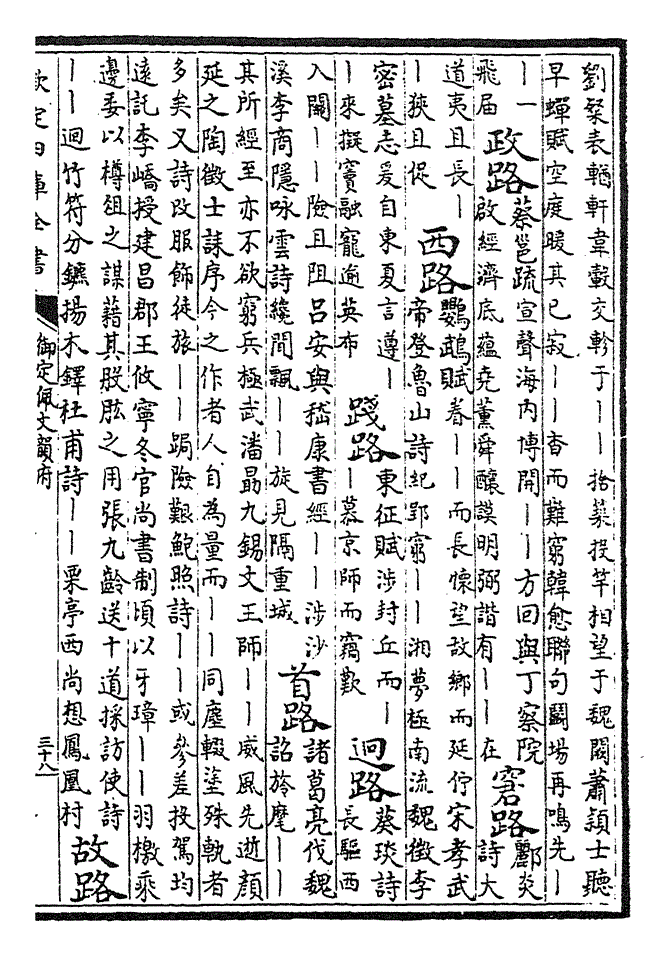 劉槩表輶軒韋轂交軫于丨丨捨築投竿相望于魏闕蕭穎士聽
早蟬賦空庭暖其已寂丨丨杳而難窮韓愈聯句鬭場再鳴先丨
丨一
飛屆
政路
蔡邕疏宣聲海内博開丨丨方回與丁察院
啟經濟底蘊堯薰舜釀謨明弼諧有丨丨在
窘路
酈炎
詩大
道夷且長丨
丨狹且促
西路
鸚鵡賦眷丨丨而長懷望故鄉而延佇宋孝武
帝登魯山詩紀郢窮丨丨湘夢極南流魏徵李
密墓志爰自東夏言遵丨
丨來擬竇融寵逾英布
踐路
東征賦涉封丘而丨
丨慕京師而竊歎
迥路
蔡琰詩
長驅西
入關丨丨險且阻呂安與嵇康書經丨丨涉沙
溪李商隱咏雲詩纔聞飄丨丨旋見隔重城
首路
諸葛亮伐魏
詔於麾丨丨
其所經至亦不欲窮兵極武潘勗九錫文王師丨丨威風先逝顏
延之陶徵士誄序今之作者人自為量而丨丨同塵輟塗殊軌者
多矣又詩改服飾徒旅丨丨跼險艱鮑照詩丨丨或參差投駕均
遠託李嶠授建昌郡王攸寧冬官尚書制頃以牙璋丨丨羽檄乘
邊委以樽俎之謀藉其股肱之用張九齡送十道採訪使詩
丨丨迴竹符分鑣揚木鐸杜甫詩丨丨栗亭西尚想鳳凰村
故路
欽定四庫全書
御定佩文韻府
三十八